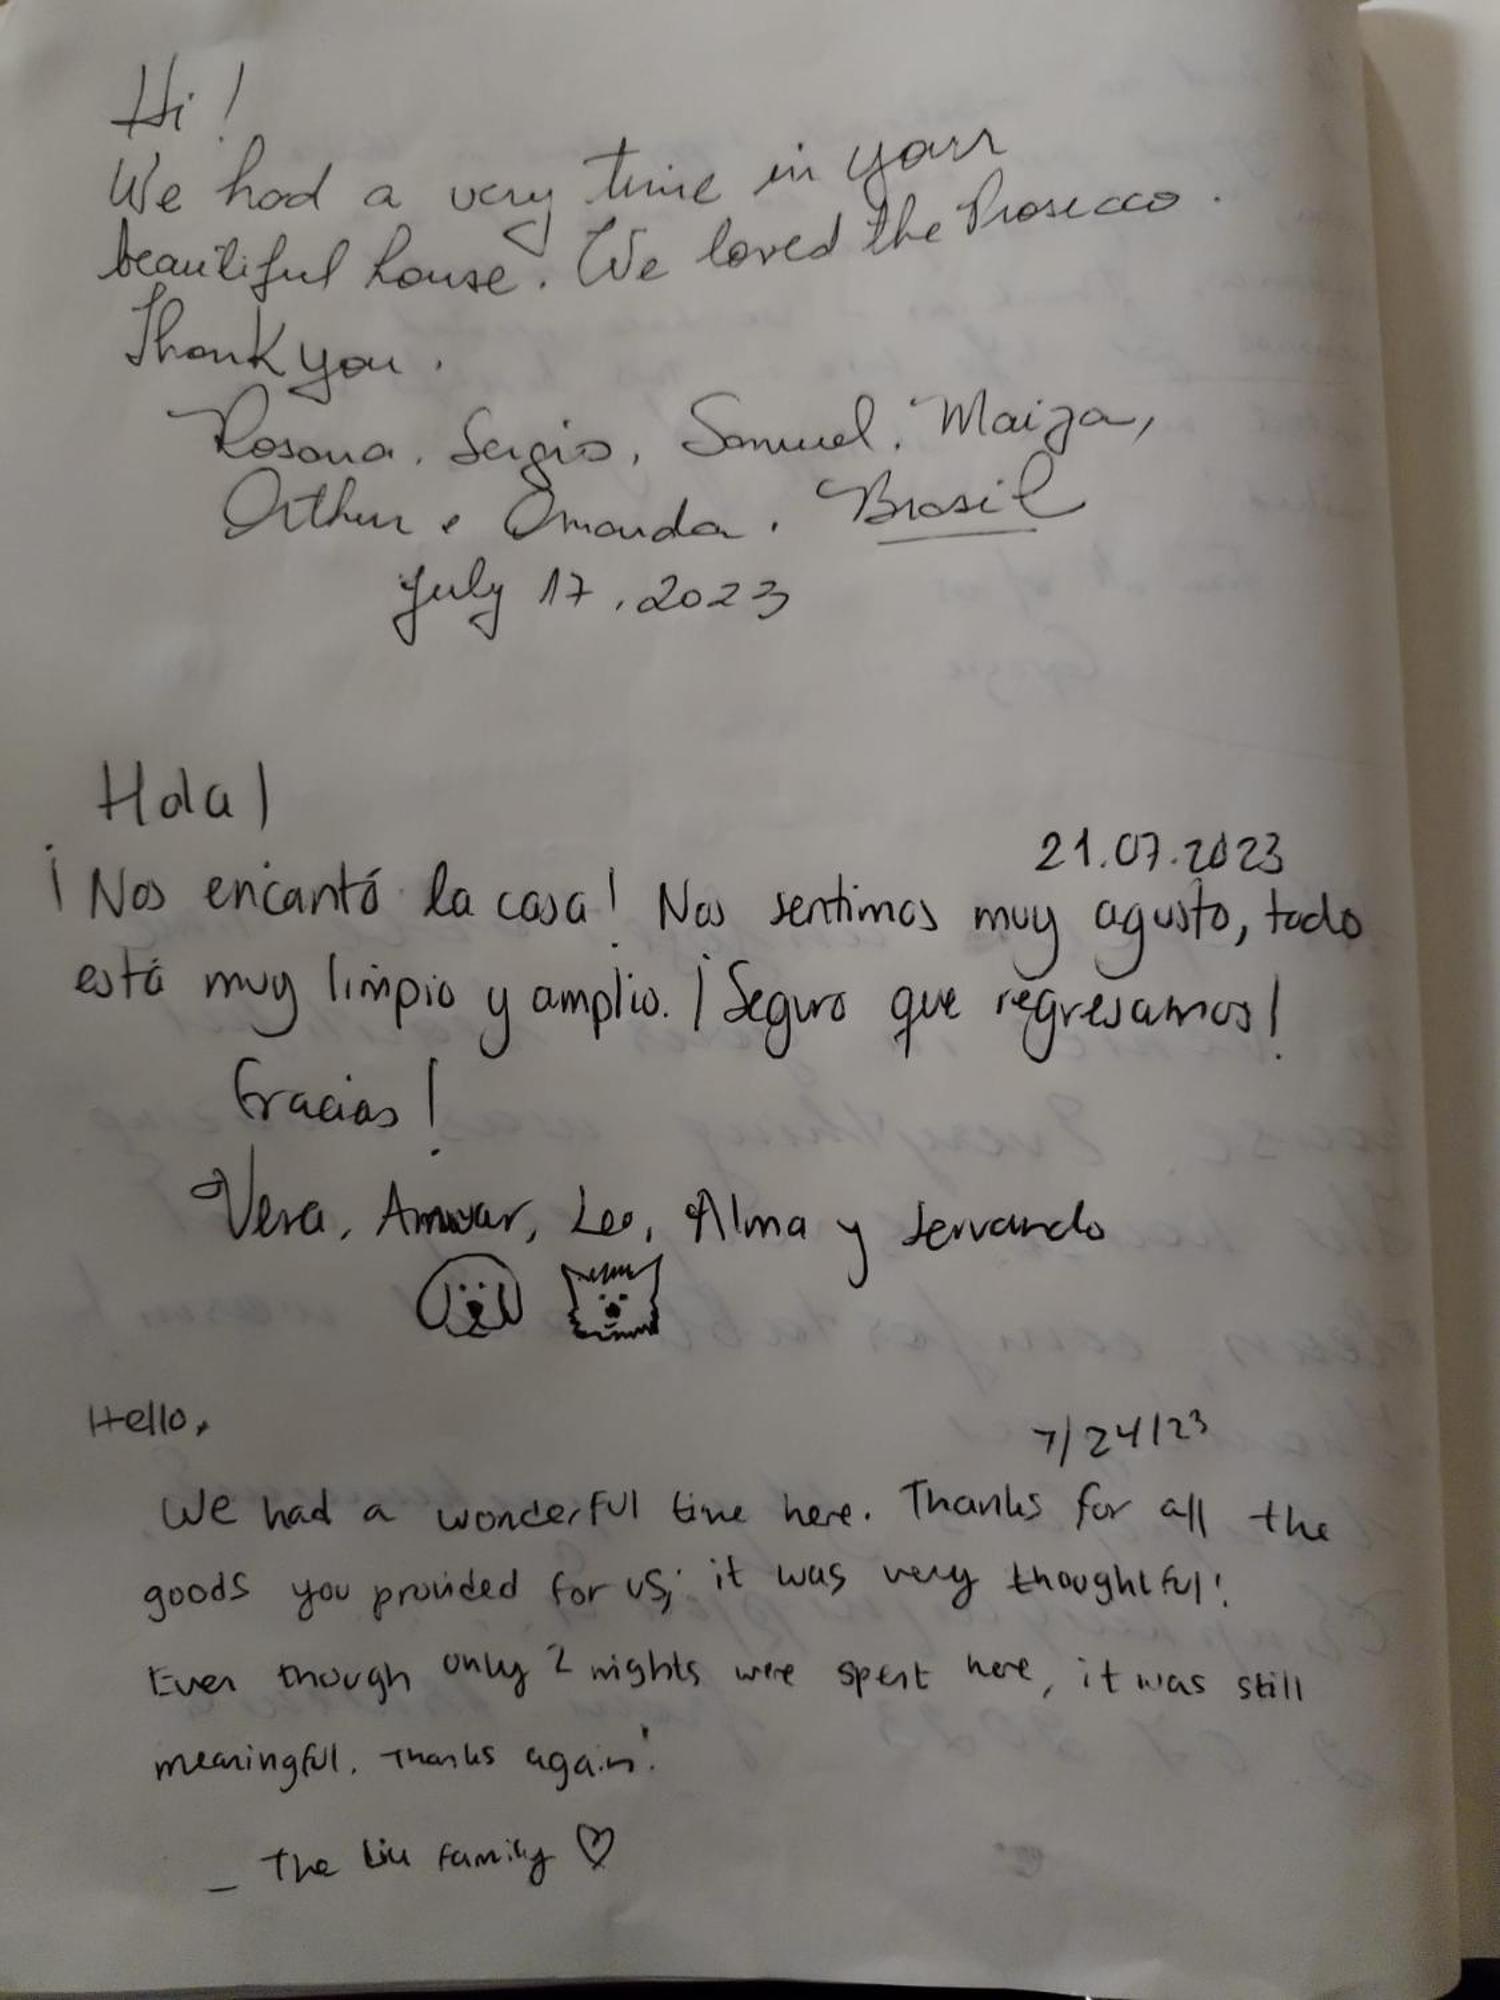 Hi!
We had a very time in your
beautiful house. We loved the Prosecco.
Thank you.
Rosana, Sergio, Samuel, Maiza,
Arthur e Amanda. Brasil
July 17, 2023
Hola!
21.07.2023
¡Nos encantó la casa! Nos sentimos muy agusto, todo
está muy limpio y amplio. ¡Seguro que regresamos!
Gracias!
Vera, Anwar, Leo, Alma y Servando
Hello,
7/24/23
We had a wonderful time here. Thanks for all the
goods you provided for us; it was very thoughtful!
Even though only 2 nights were spent here, it was still
meaningful. Thanks again!
- The Liu Family ♡